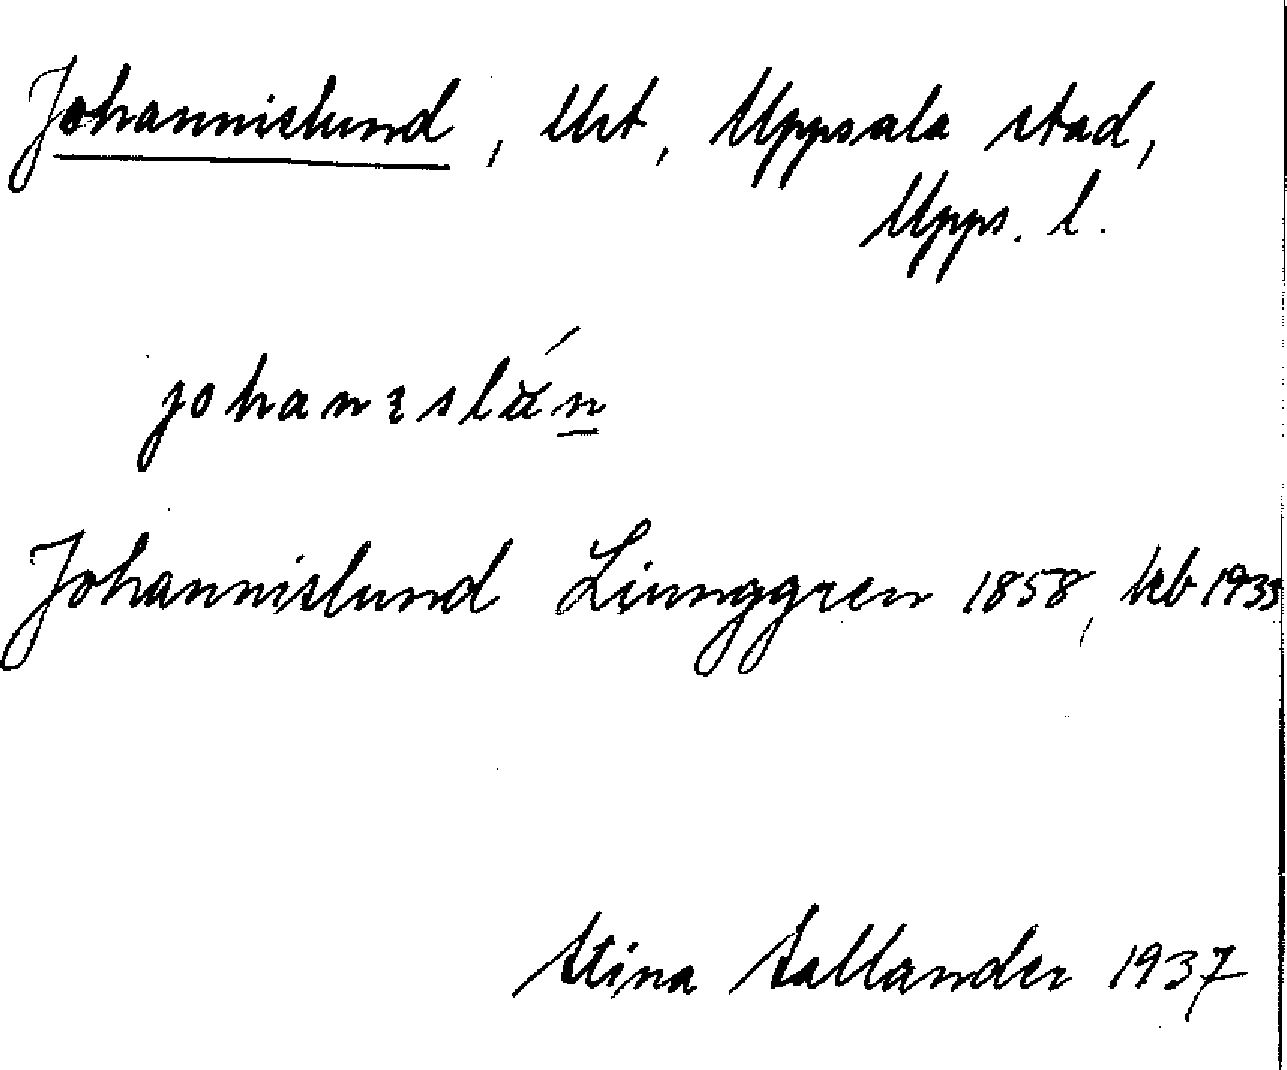 Johannislund, Ust, Uppsala stad,
Upps. l.
Johannislund Liunggren 1858, kb 1933
Stina Sallander 1937